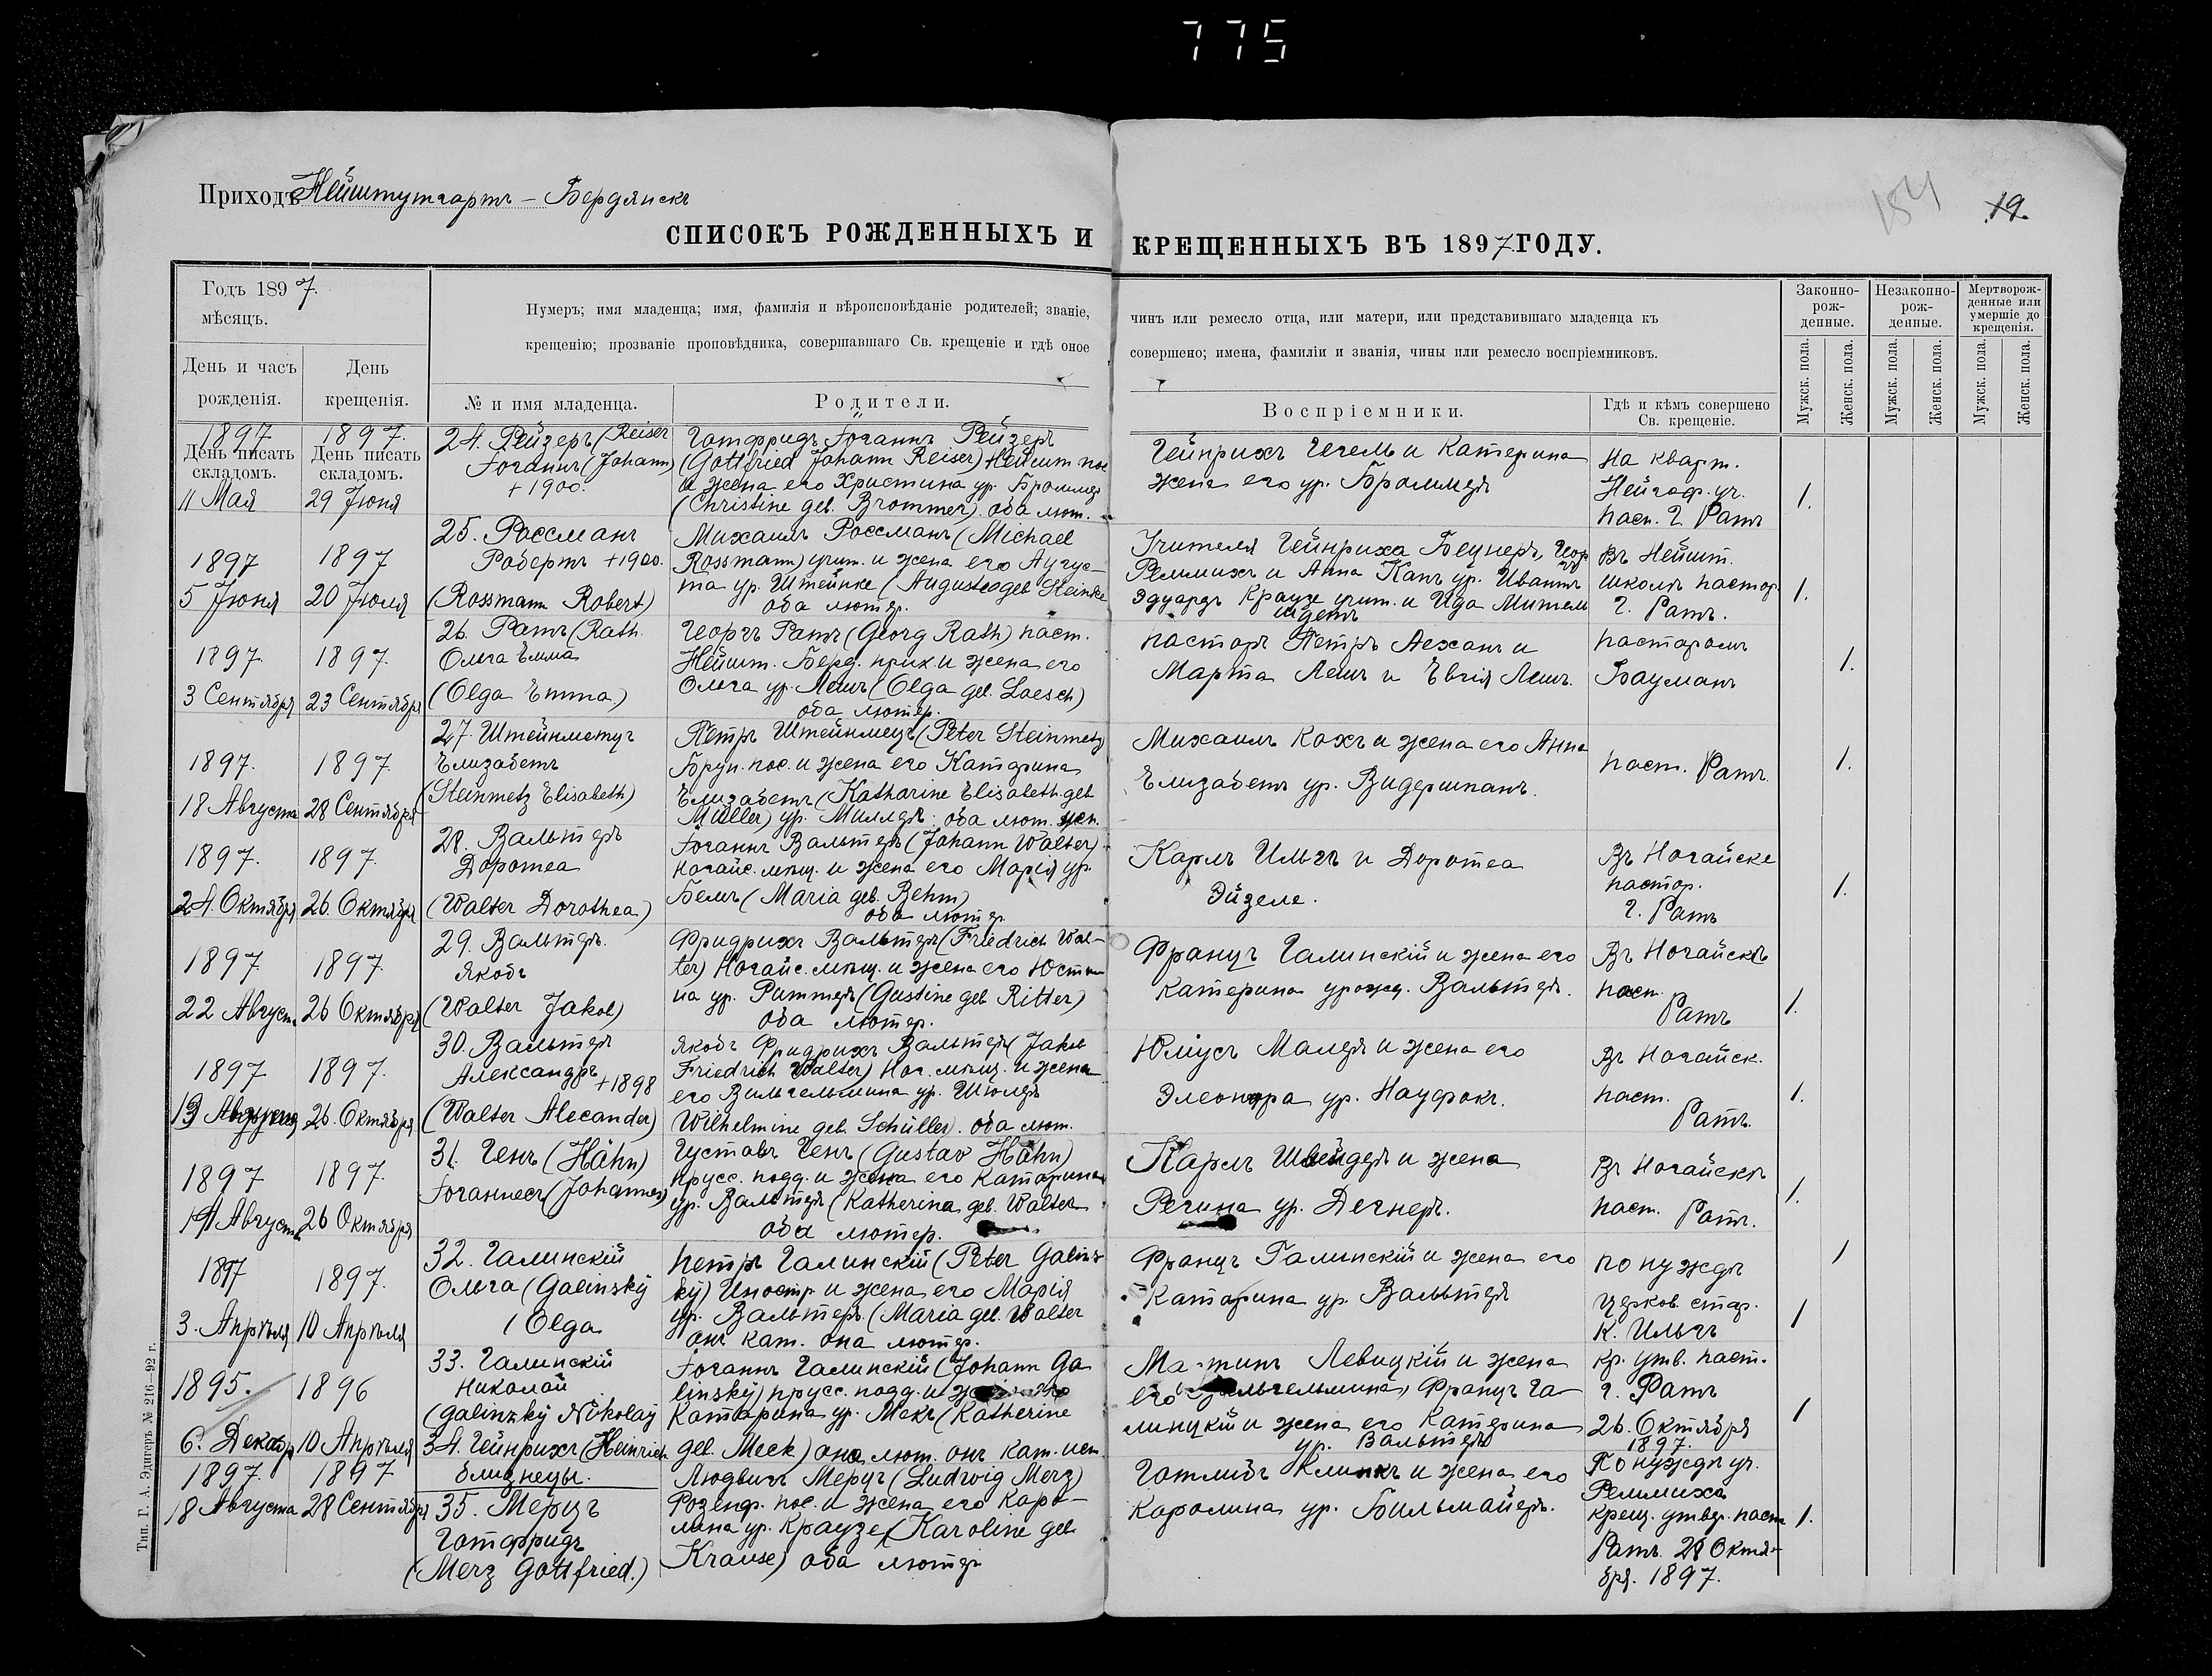 775
Приходъ Нейштутгартъ – Бердянскъ
184
19.
СПИСОКЪ РОЖДЕННЫХЪ И КРЕЩЕННЫХЪ ВЪ 1897 ГОДУ.
Годъ 1897.
мѣсяцъ.
Нумеръ; имя младенца; имя, фамилія и вѣроисповѣданіе родителей; званіе, чинъ или ремесло отца, или матери, или представившаго младенца къ
крещенію; прозваніе проповѣдника, совершавшаго Св. крещеніе и гдѣ оное совершено; имена, фамиліи и званія, чины или ремесло воспріемниковъ.
Законно-
рож-
денные.
Незаконно-
рож-
денные.
Мертворож-
денные или
умершіе до
крещенія.
День и часъ
рожденія.
День
крещенія.
№ и имя младенца.
Родители.
Воспріемники.
Гдѣ и кѣмъ совершено
Св. крещеніе.
Мужск. пола.
Женск. пола.
Мужск. пола.
Женск. пола.
Мужск. пола.
Женск. пола.
1897
День писать
складомъ.
11 Мая
1897.
День писать
складомъ.
29 Іюня
24. Рейзеръ (Reiser
Іоганнъ (Johann)
+ 1900.
Готфридъ Іоганнъ Рейзеръ
(Gottfried Johann Reiser) Нейшт пос
и жена его Христина ур. Броммеръ
(Christine geb. Brommer). оба лют.
Гейнрихъ Гегель и Катерина
жена его ур. Броммеръ
На кварт.
Нейгоф. уч.
паст. Г. Ратъ
1.
1897
5 Іюня
1897
20 Іюля
25. Россманъ
Робертъ +1900.
(Rossmann Robert)
Михаилъ Россманъ (Michael
Rossmann) учит. и жена его Аугус-
та ур. Штейнке (Auguste geb Steinke
оба лютер.
Учителя Гейнриха
Реммихъ и Анна Канъ ур.
Эдуардъ Краузе учит. и Ида
Въ Нейшт.
школѣ пастор.
Г. Ратъ.
1.
1897.
3 Сентября
1897.
23 Сентября
26. Ратъ (Rath.
Ольга Эмма
(Olga Emma)
Георгъ Ратъ (Georg Rath) паст.
Нейшт. Берд. прих. и жена его
Ольга ур. Лешъ (Olga geb. Loesch)
оба лютер.
пасторъ Петръ Леханъ и
Марта Лешъ и Евгія Лешъ.
пасторомъ
Бауманъ
1.
1897.
18 Августа
1897
28 Сентября
27. Штейнметцъ
Елизабетъ
(Steinmetz Elisabeth)
Петръ Штейнмецъ (Peter Steinmetz
Брун. пос. и жена его Катарина
Елизабетъ (Katharine Elisabeth geb
Müller) ур. Миллеръ. оба лют. исп.
Михаилъ Кохъ и жена его Анна
Елизабетъ ур. Видершпанъ.
паст. Ратъ.
1.
1897.
24. Октября
1897.
26. Октября
28. Вальтеръ
Доротеа
(Walter Dorothea)
Іоганнъ Вальтеръ (Johann Walter)
Ногайс. мѣщ. и жена его Марія ур.
Бемъ (Maria geb. Behm)
оба лютер.
Карлъ Ильгъ и Доротеа
Эйзеле.
Въ Ногайске
пастор.
Г. Ратъ
1.
1897
22 Август.
1897.
26 Октября
29. Вальтеръ.
Якобъ
(Walter Jakob)
Фридрихъ Вальтеръ (Friedrich Wal-
ter) Ногайс. мѣщ. и жена его Юсти
на ур. Риттеръ (Gustine geb Ritter)
оба лютер.
Францъ Галинскій и жена его
Катерина урожд. Вальтеръ.
Въ Ногайскѣ
паст.
Ратъ
1.
1897
1897.
26. Октября
30. Вальтеръ
Александръ +1898
(Walter Alecander)
Якобъ Фридрихъ Вальтеръ (Jakob
Friedrich Walter) Ног. мѣщ. и жена
его Вильгельмина ур. Шюлеръ
Wilhelmine geb. Schüller). оба лют.
Юліусъ Малеръ и жена его
Элеонора ур. Науфокъ.
Въ Ногайск.
паст.
Ратъ.
1.
1897
Август.
1897.
26 Октября
31. Генъ (Hähn)
Іоганнесъ (Johannes)
Густавъ Генъ (Gustav Hähn)
прусс. подд. и жена его Катарина
ур. Вальтеръ (Katherina geb. Walter
оба лютер.
Карлъ Швейдеръ и жена
Регина ур. Дегнеръ.
Въ Ногайскѣ
паст. Ратъ.
1.
1897
3. Апрѣля
1897.
10 Апрѣля
32. Галинскій
Ольга (Galinský
(Olga
Петръ Галинскій (Peter Galins-
ký) Иностр и жена его Марія
ур. Вальтеръ. (Maria geb. Walter
онъ кат. она лютер.
Францъ Галинскій и жена его
Катарина ур. Вальтеръ
по нуждѣ
церков. стар.
К. Ильгъ
1
1
1895.
6. Декабр
1896
10 Апрѣля
33. Галинскій
Николай
(Galinzký Nikolaý
34. Гейнрихъ (Heinrich
близнецы.
Іоганнъ Галинскій (Johann Ga
linský) прусс. подд. и жена его
Катарина ур. Мекъ (Katherine
geb. Meck) она лют. онъ кат. исп
Мартинъ Левицкій и жена
его Вильгельмина, Францъ Га-
лицкій и жена его Катерина
ур. Вальтеръ
кр. утв. паст.
Г. Ратъ
26. Октября
1897.
1
1897.
18 Августа
1897
28 Сентября
35. Мерцъ
Готфридъ
(Merz Gottfried.)
Людвигъ Мерцъ (Ludwig Merz)
Розенф. пос. и жена его Каро-
лина ур. Краузе (Karoline geb.
Krause) оба лютер
Готлибъ Клинкъ и жена его
Каролина ур. Бильмайеръ.
По нуждѣ уч.
Реммиха
крещ. утвер. паст
Ратъ. 28 Октя-
бря. 1897.
1.
Тип. Г. А. Эдигеръ № 216—92 г.